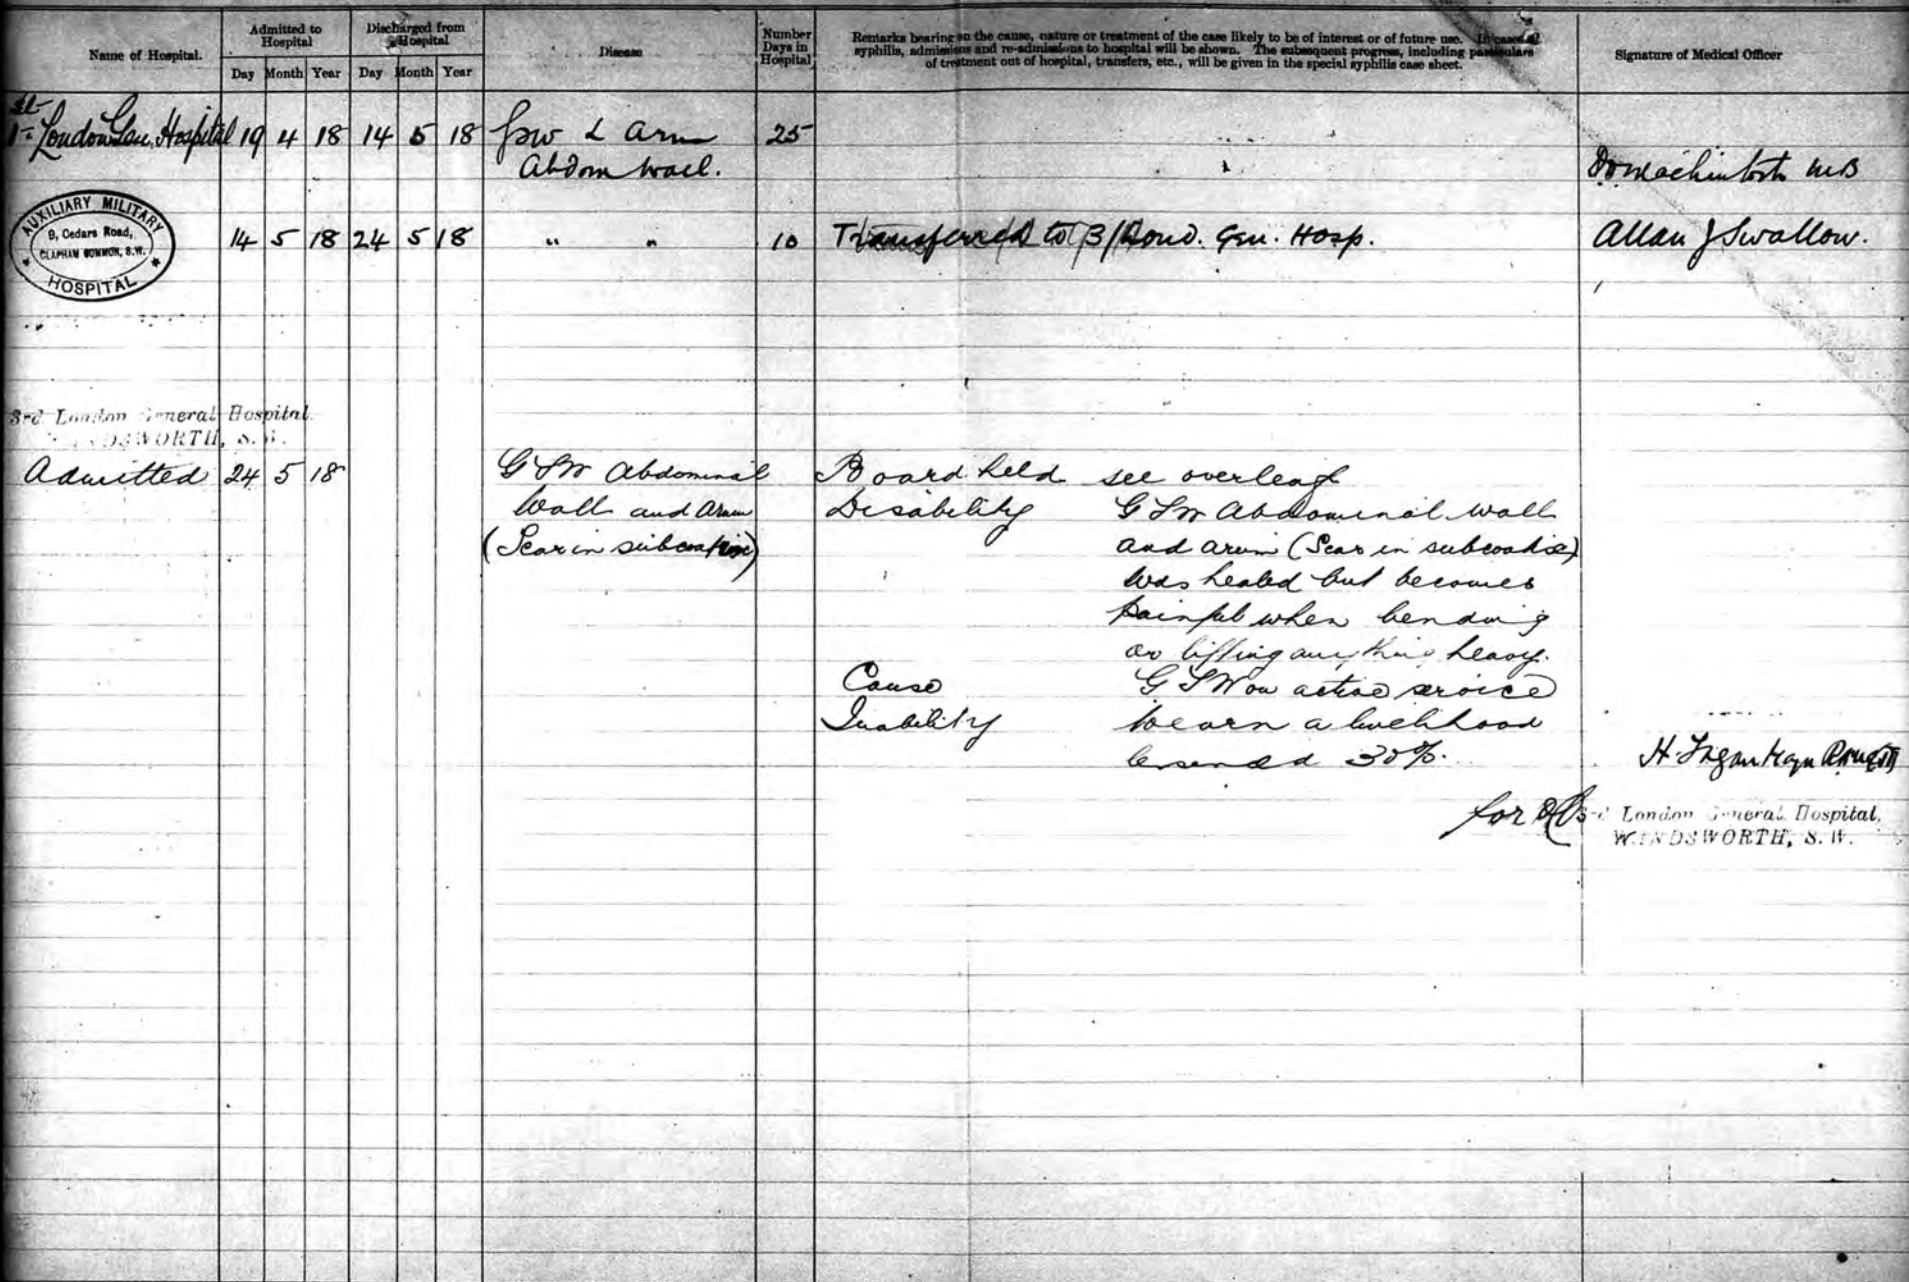 Name of Hospital.
Admitted to Hospital
Discharged from Hospital
Day Month Year Day Month Year
Disease
Number Days in Hospital
Remarks bearing on the cause, nature or treatment of the case likely to be of interest or of future use. In case of
syphilis, admissions and re-admissions to hospital will be shown. The subsequent progress, including particulars
of treatment out of hospital, transfers, etc., will be given in the special syphilis case sheet.
Signature of Medical Officer
1st London Gen. Hospital 19 4 18 14 5 18 GSW L Arm 25
Abdom wall.
Mackintosh MB
AUXILIARY MILITARY
9, Cedars Road,
CLAPHAM COMMON, S.W.
HOSPITAL
14 5 18 24 5 18 " " 10 Transferred to 3/Lond. Gen. Hosp. Allan J Swallow.
3rd London General Hospital
WANDSWORTH, S.W.
Admitted 24 5 18 GSW Abdominal Board held see overleaf
Wall and Arm Disability GSW Abdominal wall
(Scar in and arm (Scar in
was healed but becomes
painful when bending
or lifting anything heavy.
Cause GSW on active service
Inability to earn a livelihood
lessened 30%.
H.
for OC 3rd London General Hospital,
WANDSWORTH, S.W.